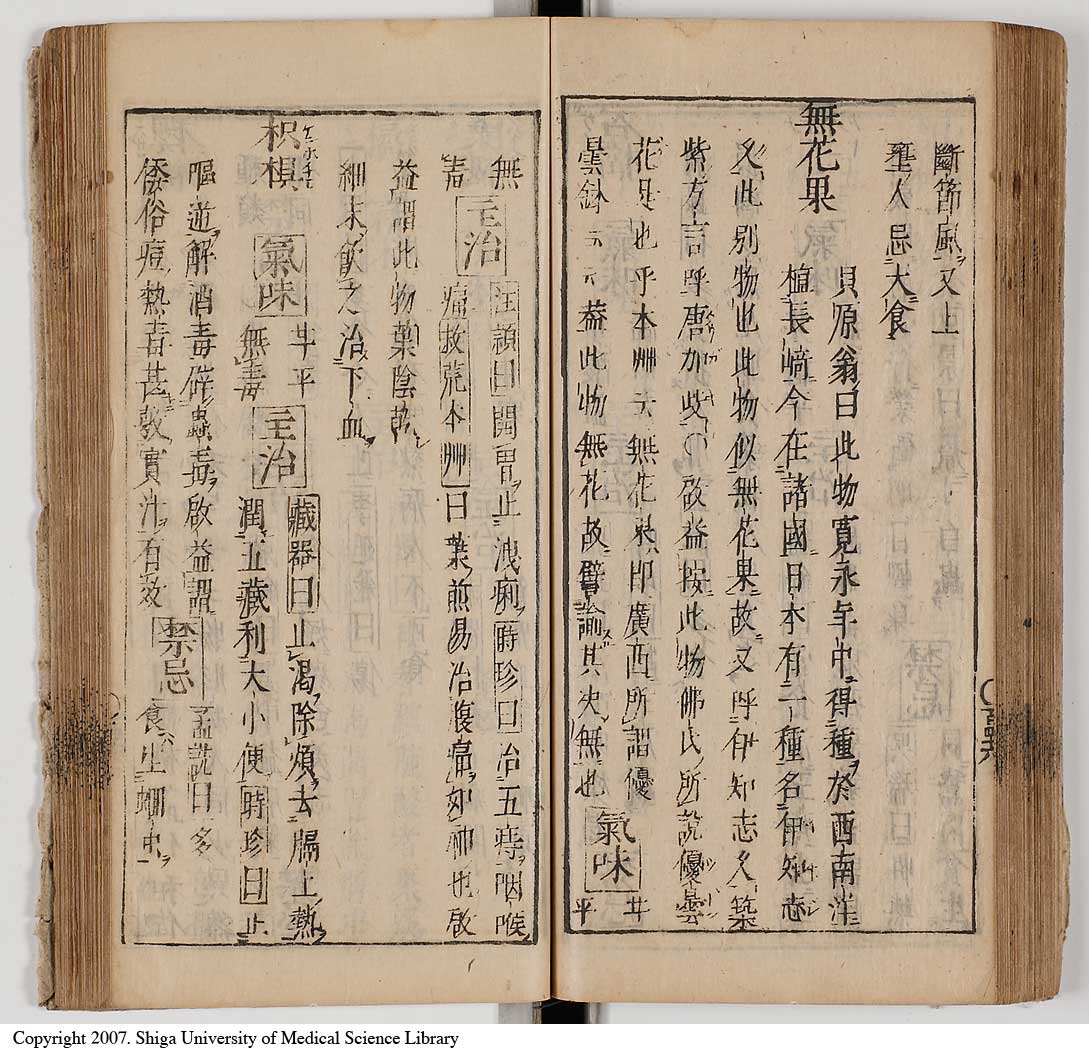 斷節風ヲ又上
壅人忌大食
無花果
貝原翁曰此物寬永年中得種ヲ於西南洋
植長﨑今在諸國日本有一種名伊知志
久此別物也此物似無花果故又呼伊知志久築
紫方言呼唐加吱〇啟益按此物佛氏所說優曇
花是也乎本艸云無花果即廣西所謂優
曇鉢云云益此物無花故譬諭其火無也氣味甘平
無
毒主治汪頴曰開胃止洩痢時珍曰治五痔咽喉
痛救荒本艸曰葉煎湯治腹痛如神也啟
益謂此物菓陰乾
細末飲之治下血
枳椇ケンホナシ氣味甘平
無毒主治藏器曰止渴除煩去膈上熱
潤五藏利大小便時珍曰止
嘔逆解酒毒辟蟲毒啟益謂
倭俗痘熱毒甚敷實汁有效禁忌孟詵曰多
食生蚘虫